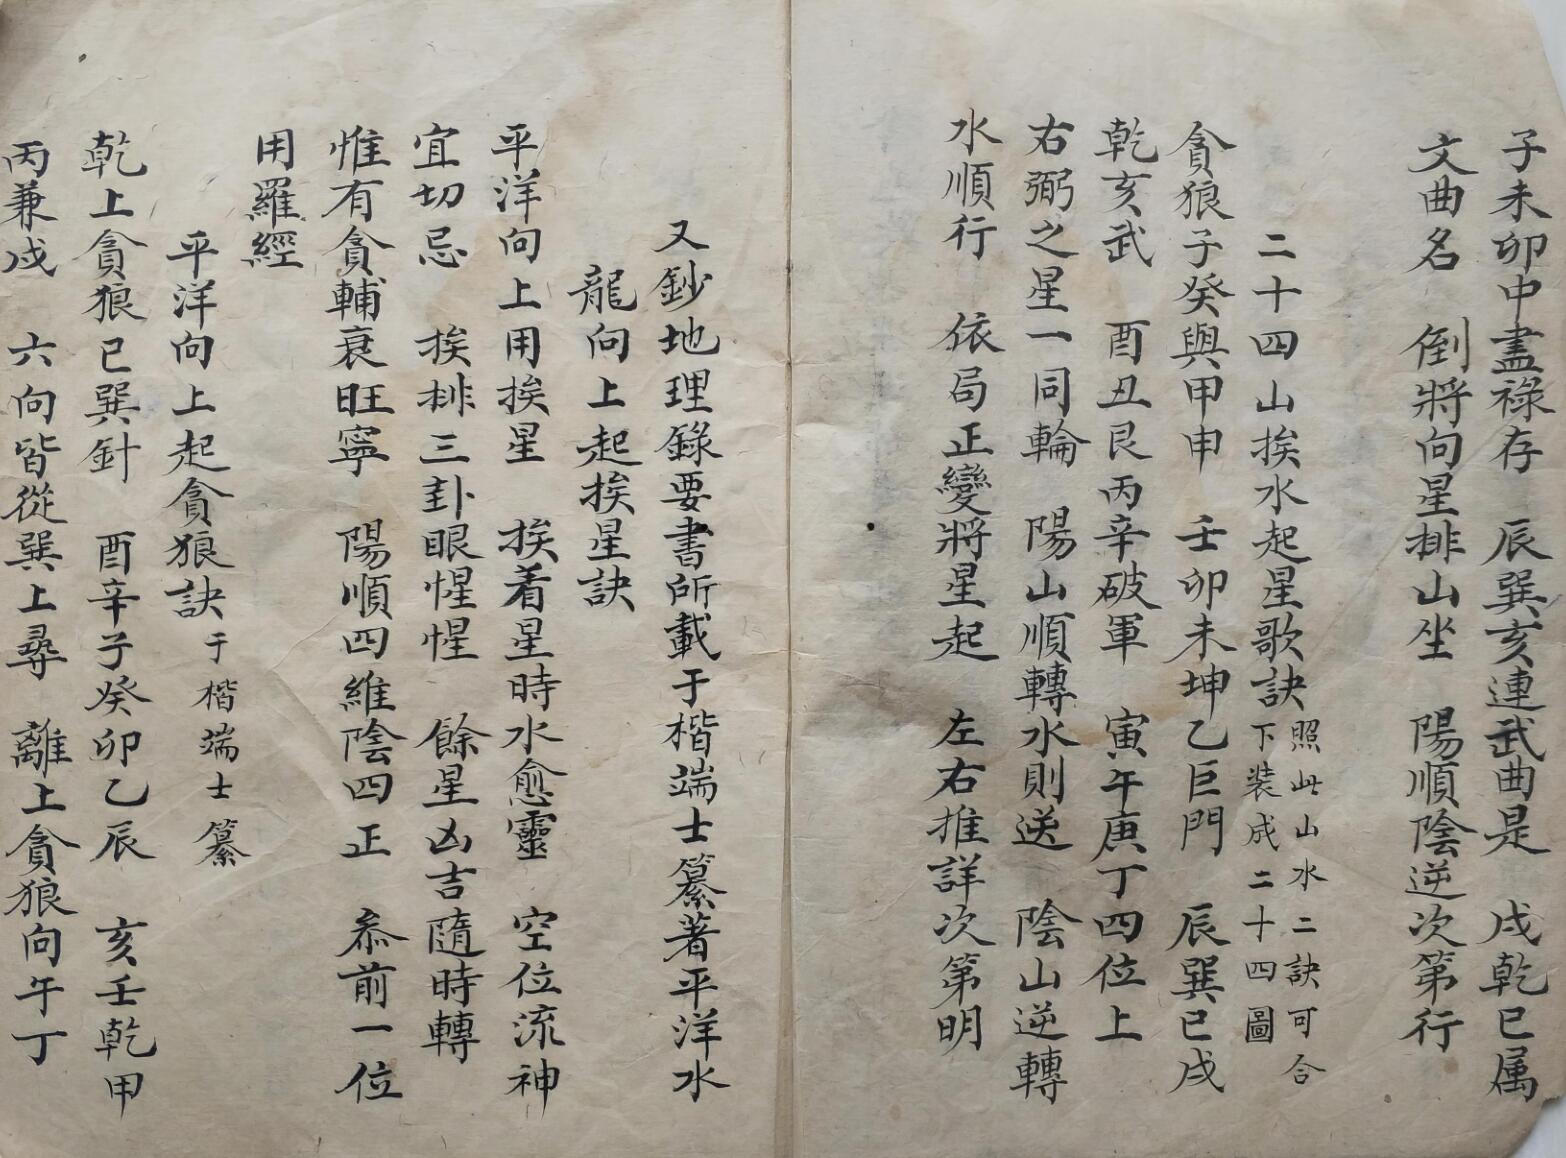 子未卯中盡祿存　辰巽亥連武曲是　戌乾巳属
文曲名　倒將向星排山坐　陽順陰逆次第行
二十四山挨水起星歌訣
照此山水二訣可合
下装成二十四圖
貪狼子癸與甲申　壬卯未坤乙巨門　辰巽巳戌
乾亥武　酉丑艮丙辛破軍　寅午庚丁四位上
右弼之星一同輪　陽山順轉水則逆　陰山逆轉
水順行　依局正變將星起　左右推詳次第明
又鈔地理錄要書所載于楷端士纂著平洋水
龍向上起挨星訣
平洋向上用挨星　挨着星時水愈靈　空位流神
宜切忌　挨排三卦眼惺惺　餘星凶吉隨時轉
惟有貪輔衰旺寧　陽順四維陰四正　叅前一位
用羅經
平洋向上起貪狼訣于楷端士纂
乾上貪狼巳巽針　酉辛子癸卯乙辰　亥壬乾甲
丙兼戌　六向皆從巽上尋　離上貪狼向午丁